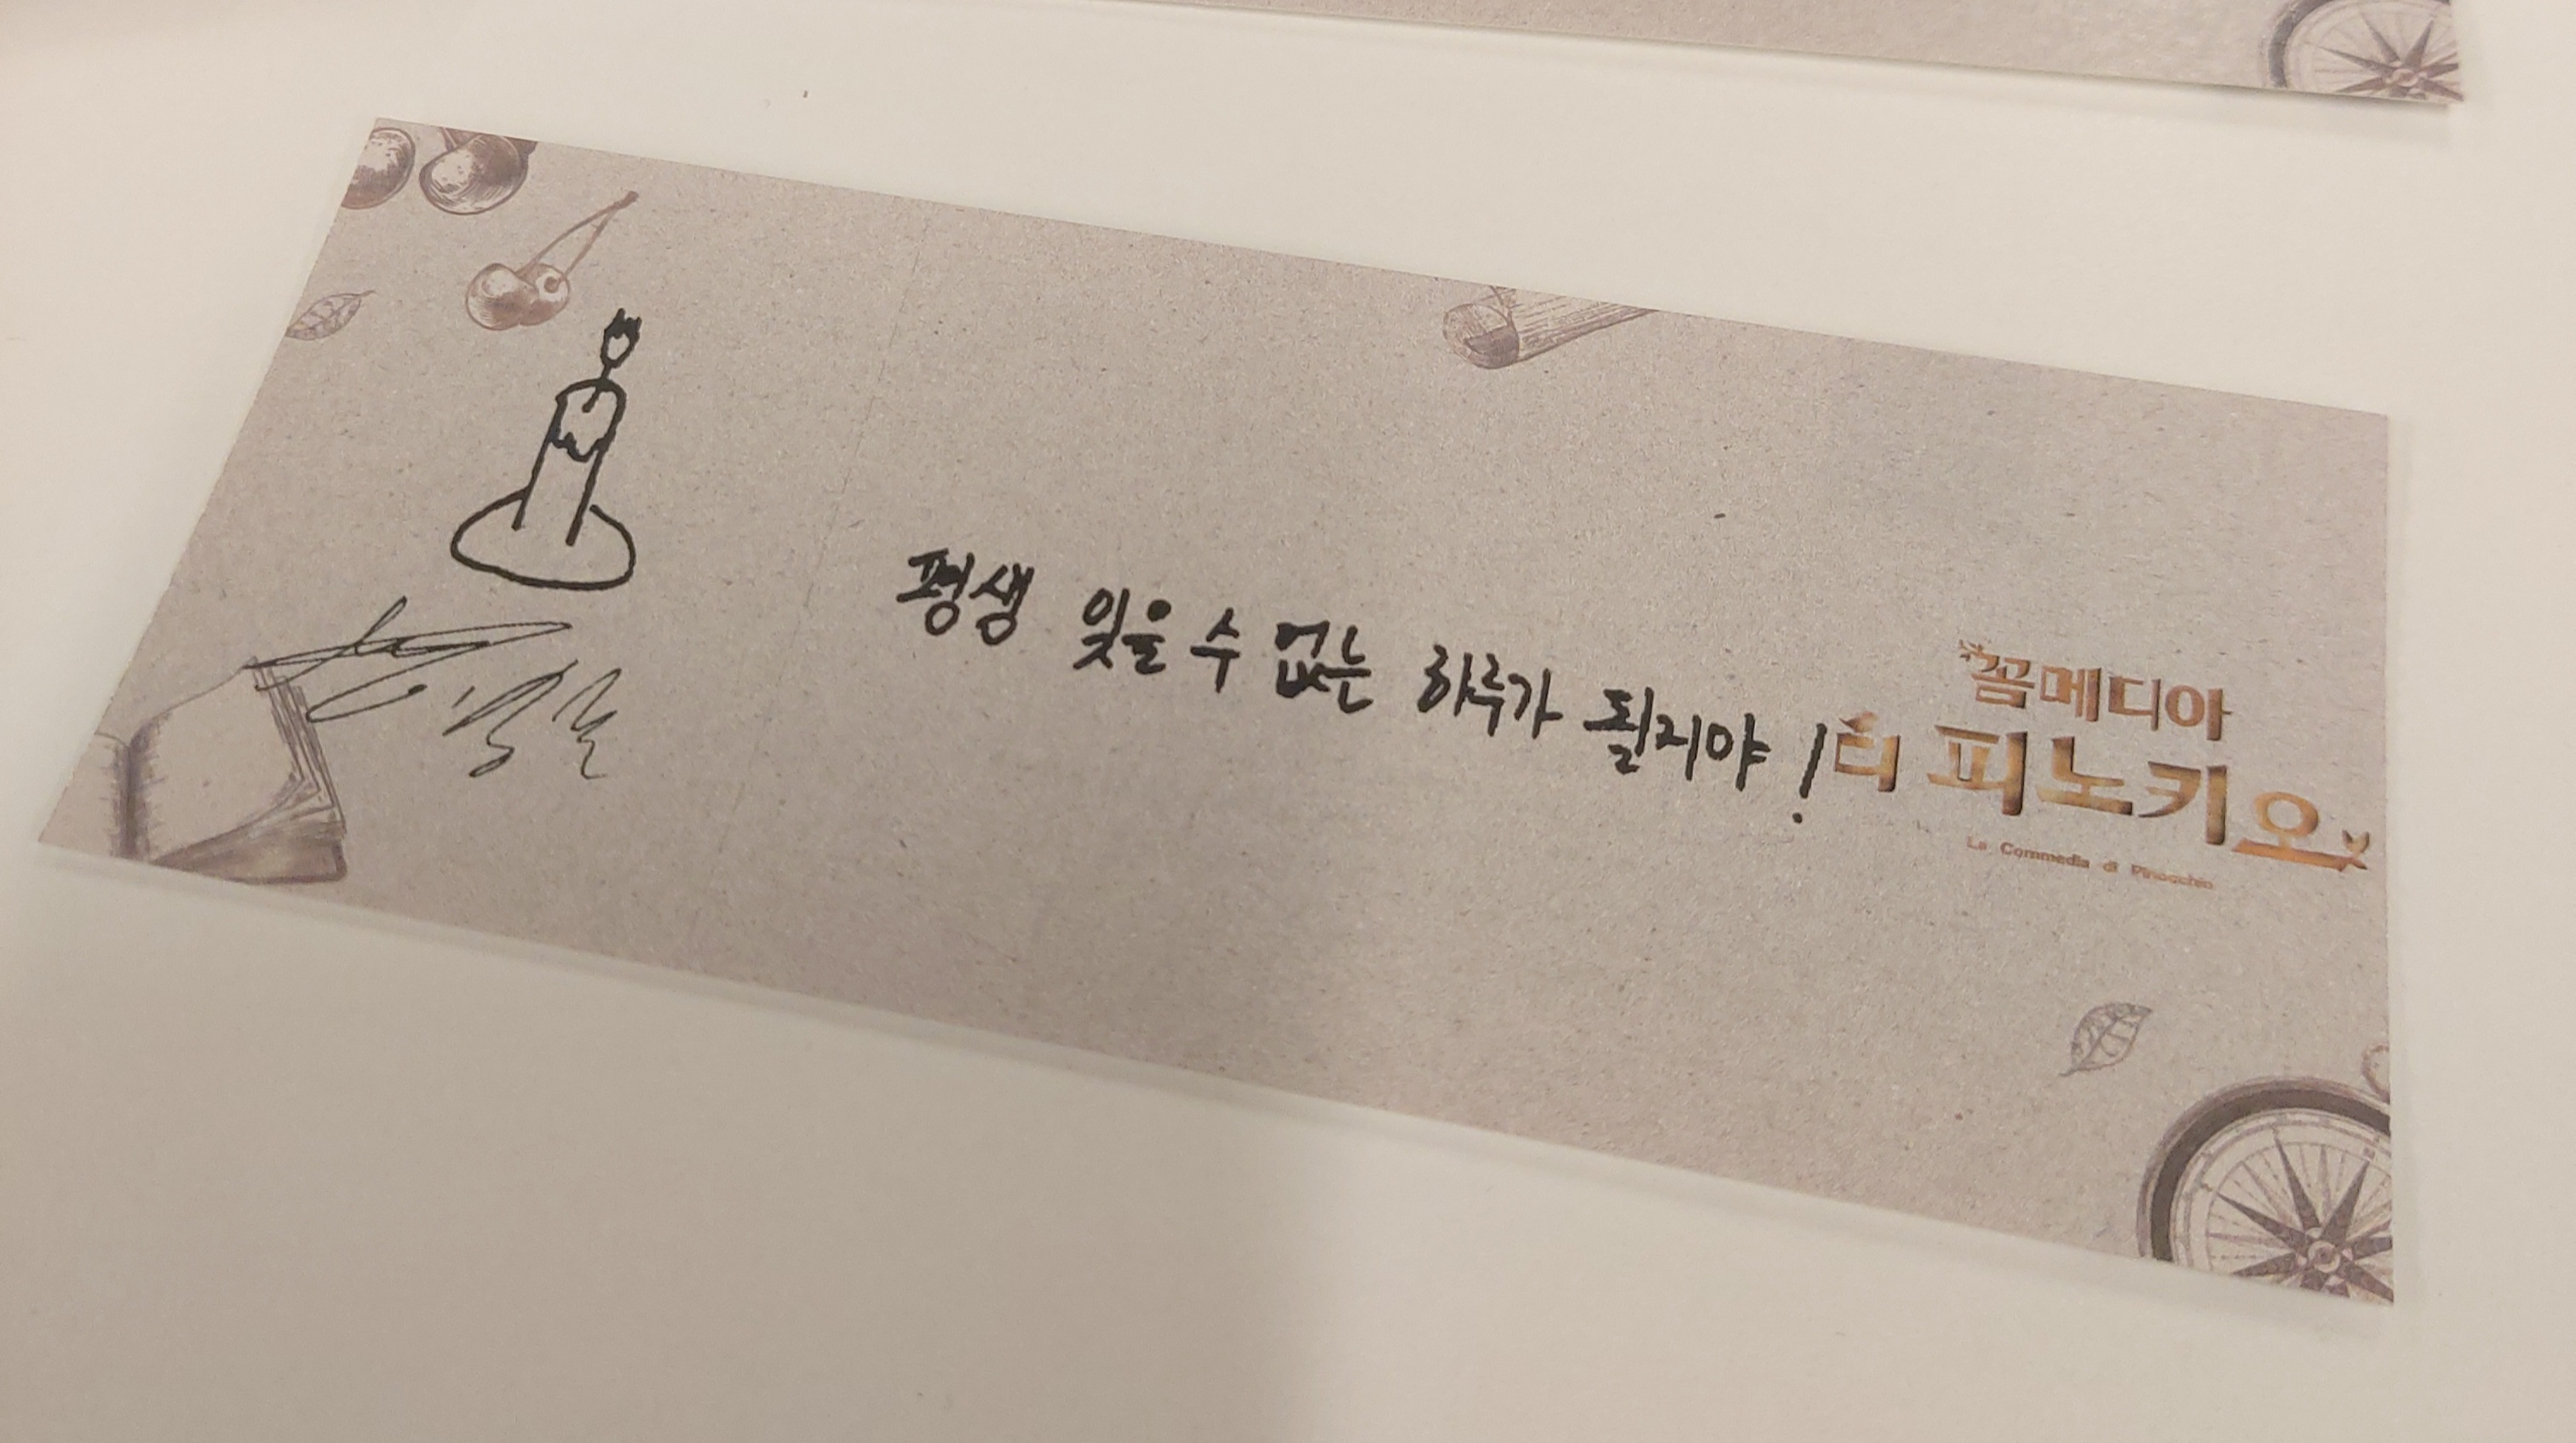 평생 잊을 수 없는 하루가 될지야!
꼼메디아
디 피노키오
La Commedia di Pinocchio